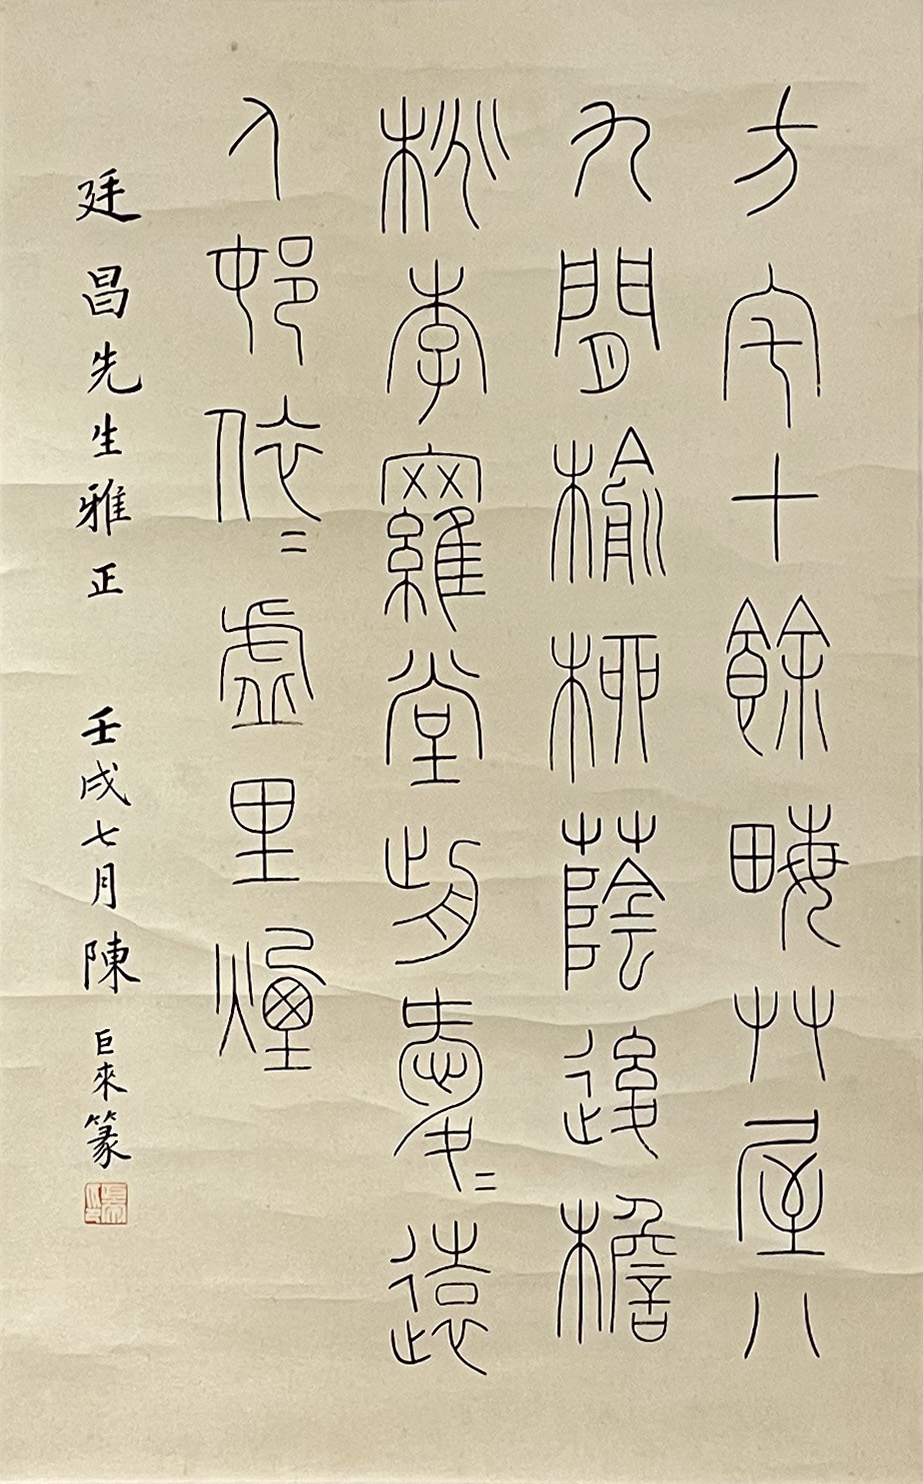 方宅十餘畮艸屋八
九閒榆柳蔭後檐
桃李羅堂前愛〻遠
人邨依〻虛里煙
廷昌先生雅正 壬戌七月 陳巨來篆